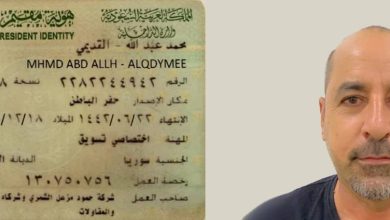 المملكة العربية السعودية
هوية مقيم
وزارة الداخلية
RESIDENT IDENTITY
محمد عبد الله - القديمي
MHMD ABD ALLH - ALQDYMEE
الرقم ٢٢٨٢٢٤٤٩٤٢
مكان الإصدار حفر الباطن
الانتهاء ١٤٤٢/٠٦/٢٢ الميلاد /١٢/١٨
المهنة اختصاصي تسويق
الجنسية سوريا الديانة
رخصة العمل ١٣٠٧٥٠٧٥٦
صاحب العمل شركة حمود مزعل الشمري وشركاه
والمقاولات